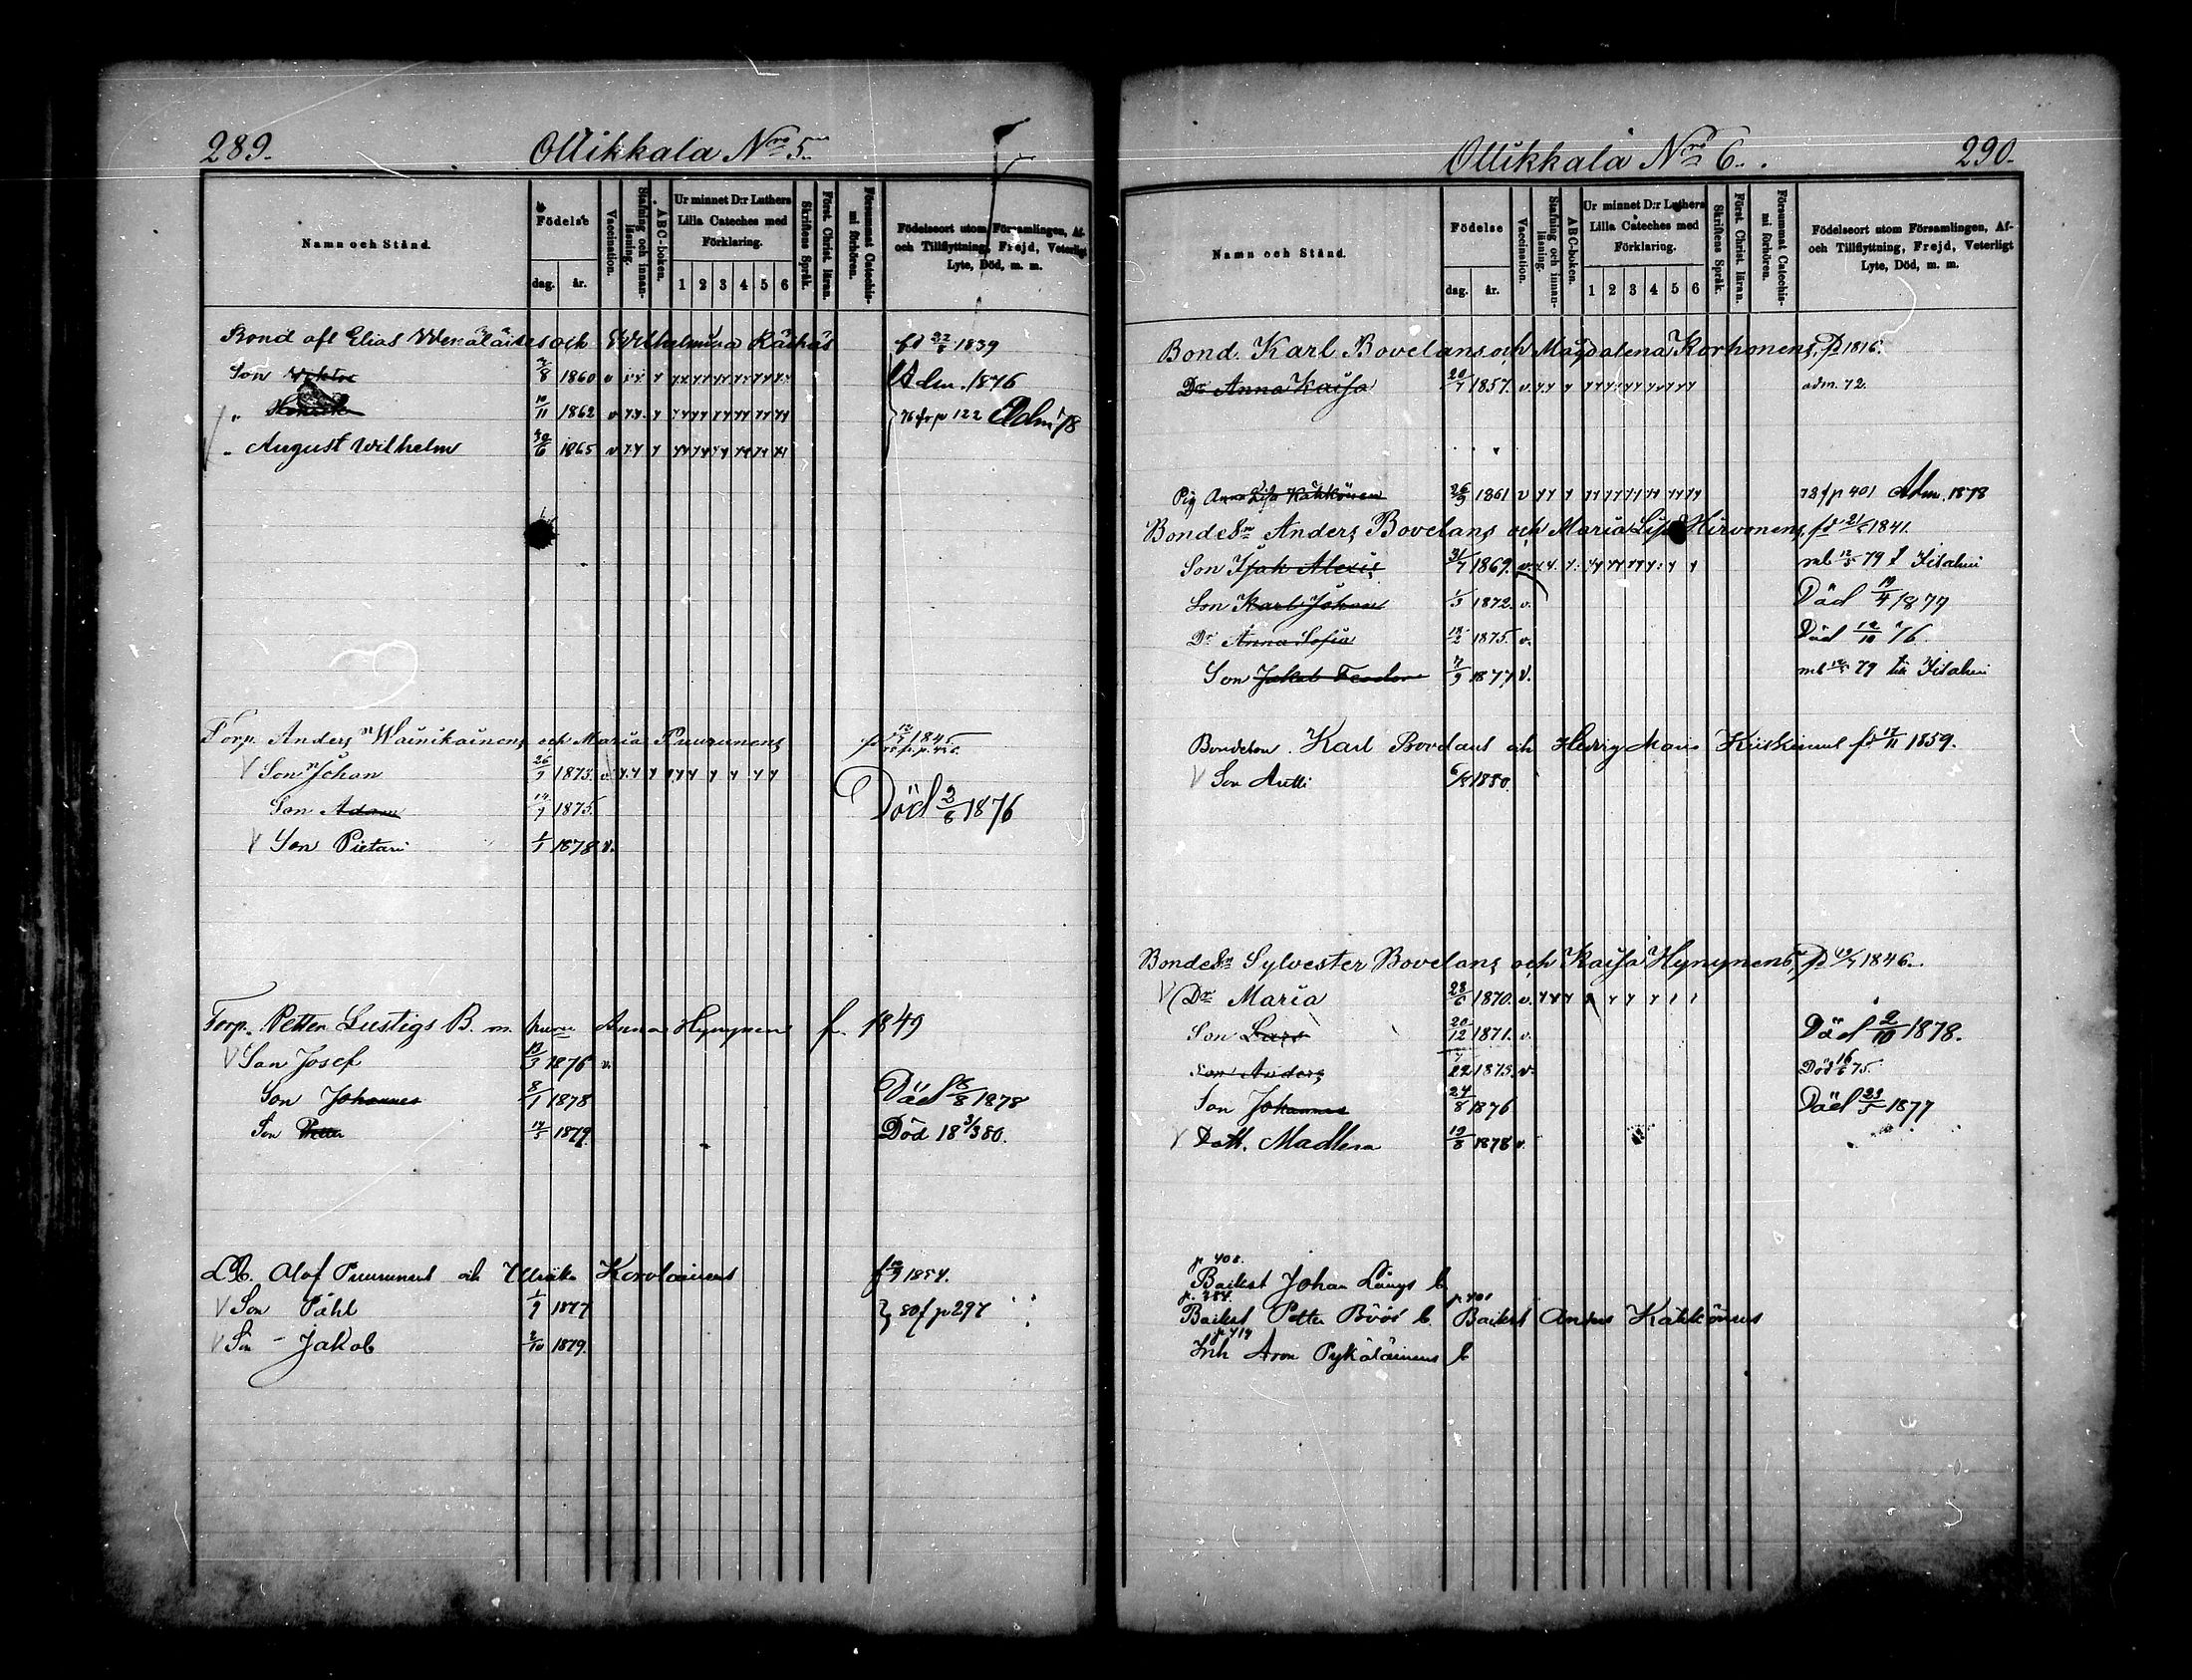 289.
Ollikkala Nro 5
Namn och Stånd.
Födelse
dag. år.
Vaccination.
Stafning och innanläsning.
ABC-boken.
Ur minnet D:r Luthers Lilla Cateches med Förklaring.
1 2 3 4 5 6
Skriftens Språk.
Först. Christ. läran.
Försummat Catechismi förhören.
Födelseort utom Församlingen, Af- och Tillflyttning, Frejd, Veterligt Lyte, Död, m. m.
Bond afl Elias och Wilhelmina 1839
Son 7/8 1860 v Adm. 1876
" 10/11 1862 v 76 fr p 122 Adm 78
" August Wilhelm 30/6 1865 v
Torp. Anders Wainikainens och Maria Puurunens 1845
V Son Johan 26/7 1873 v.
Son Adam 1875. Död 2/8 1876
V Son Pietari 1/1 1878 v.
Torp. Petter Lustigs B. m. Anna Hynynen f. 1849
V Son Josef 13/3 1876 v.
Son Johannes 8/1 1878 Död 6/8 1878
Son Petter 1879 Död 18 3/3 80.
Olof Puurunens och Ulrika f 1854.
V Son Påhl 1/9 1877 } 80 f p 297
V Son - Jakob 2/10 1879.
Ollikkala Nro 6.
290.
Namn och Stånd.
Födelse
dag. år.
Vaccination.
Stafning och innanläsning.
ABC-boken.
Ur minnet D:r Luthers Lilla Cateches med Förklaring.
1 2 3 4 5 6
Skriftens Språk.
Först. Christ. läran.
Försummat Catechismi förhören.
Födelseort utom Församlingen, Af- och Tillflyttning, Frejd, Veterligt Lyte, Död, m. m.
Bond. Karl Bovelans och Magdalena Korhonens, fd 1816.
Dr Anna Kaisa 20/7 1857. v. adm. 72.
Pig Anna Lisa Kähkönen 26/9 1861 v 78 f p 401 Adm. 1878
Bonde Sn Anders Bovelans och Maria Lisa Hirvonens, fd 1841.
Son Isak Alexis 31/7 1869. v. mb 12/5 79 t Iisalmi
Son Karl Johan 1/3 1872. v. Död 19/4 1877
Dr Anna Sofia 1875. v. Död 12/10 76
Son Jakob Feodor 7/9 1877 v. mb 79 till Iisalmi
Bondeson Karl Bovelans och Hedvig Maria fd 1859.
V Son Antti 1880.
Bonde Sn Sylvester Bovelans och Kaisa Hynynens, fd 1846.
V Dr Maria 28/6 1870. v.
Son Lars 20/12 1871. v. Död 2/10 1878.
Son Anders 1875. v. Död 16/6 75.
Son Johannes 24/8 1876 Död 23/5 1877
V Dott. Madlena 19/8 1878 v.
p. 408.
Backst Johan Längs b
p. 384. p 401
Backst Petter b Backst Anders Kähkönens
p 419
Inh Aron Pykäläinens b